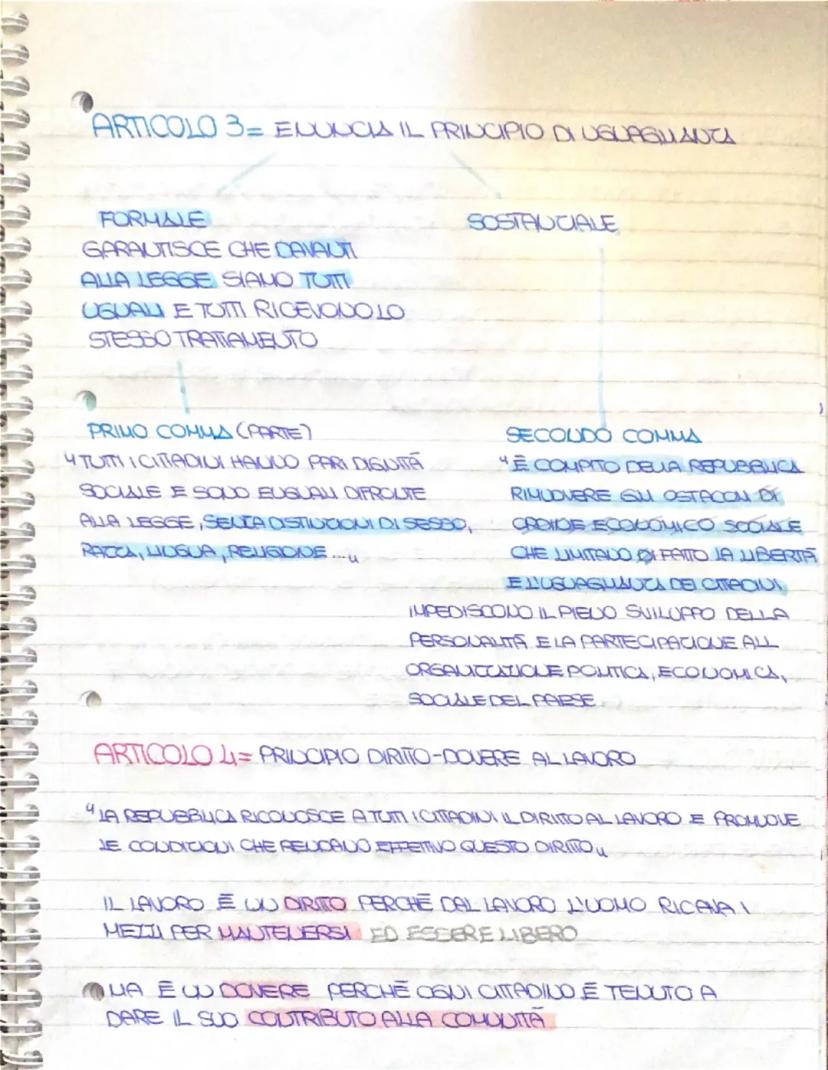 ARTICOLO 3 = ENUNCIA IL PRINCIPIO DI UGUAGLIANZA
FORMALE
GARANTISCE CHE DAVANTI
ALLA LEGGE SIAMO TUTTI
UGUALI E TUTTI RICEVONO LO
STESSO TRATTAMENTO
PRIMO COMMA (PARTE)
"TUTTI I CITTADINI HANNO PARI DIGNITÀ
SOCIALE E SONO EUGUALI DIFRONTE
ALLA LEGGE, SENZA DISTINZIONI DI SESSO,
RAZZA, LINGUA, RELIGIONE ..."
SOSTANZIALE
SECONDO COMMA
"È COMPITO DELLA REPUBBLICA
RIMUOVERE GLI OSTACOLI DI
ORDINE ECONOMICO SOCIALE
CHE LIMITANO DI FATTO LA LIBERTÀ
E L'UGUAGLIANZA DEI CITTADINI
IMPEDISCONO IL PIENO SVILUPPO DELLA
PERSONALITÀ E LA PARTECIPAZIONE ALL
ORGANIZZAZIONE POLITICA, ECONOMICA,
SOCIALE DEL PAESE
ARTICOLO 4 = PRINCIPIO DIRITTO-DOVERE AL LAVORO
"LA REPUBBLICA RICONOSCE A TUTTI I CITTADINI IL DIRITTO AL LAVORO E PROMUOVE
LE CONDIZIONI CHE RENDANO EFFETTIVO QUESTO DIRITTO"
IL LAVORO È UN DIRITTO PERCHÈ DAL LAVORO L'UOMO RICAVA I
MEZZI PER MANTENERSI ED ESSERE LIBERO
MA È UN DOVERE PERCHÈ OGNI CITTADINO È TENUTO A
DARE IL SUO CONTRIBUTO ALLA COMUNITÀ